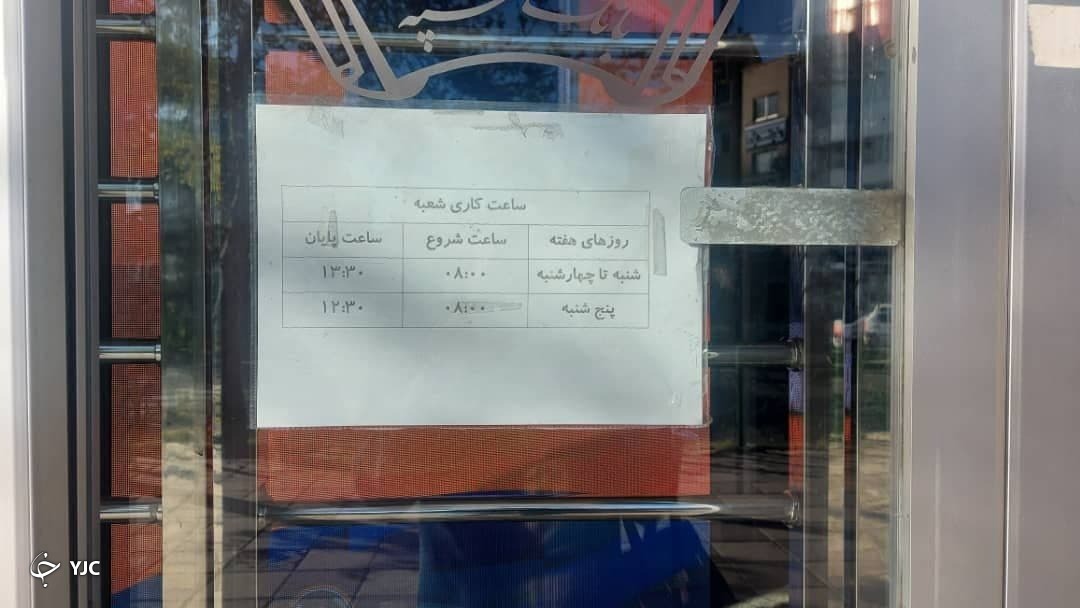 بانک سپه
ساعت کاری شعبه
روزهای هفته ساعت شروع ساعت پایان
شنبه تا چهارشنبه ۰۸:۰۰ ۱۳:۳۰
پنج شنبه ۰۸:۰۰ ۱۲:۳۰
YJC